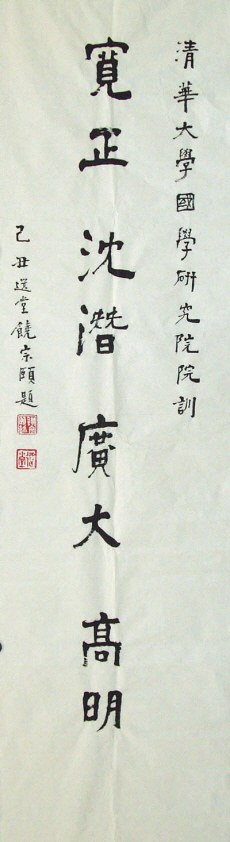 清華大學國學研究院院訓
寬正 沈潛 廣大 高明
己丑 選堂饒宗頤題